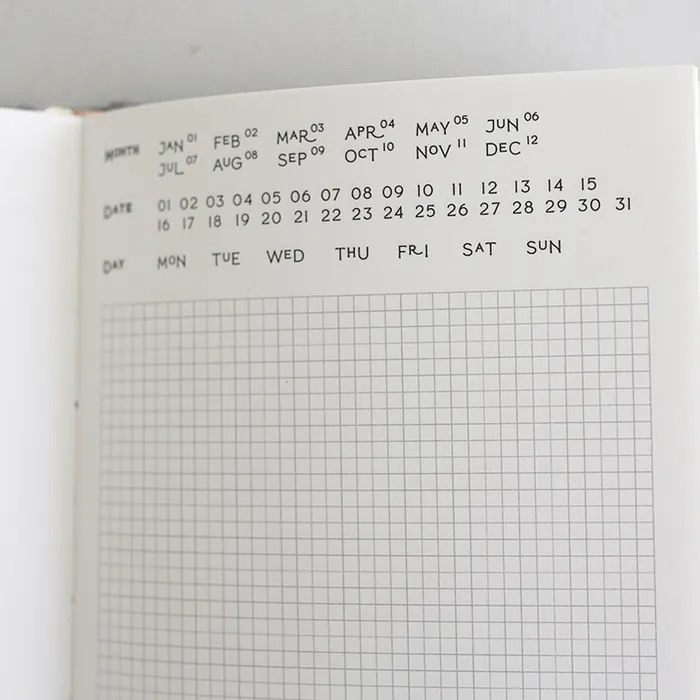 MONTH JAN 01 FEB 02 MAR 03 APR 04 MAY 05 JUN 06
JUL 07 AUG 08 SEP 09 OCT 10 NOV 11 DEC 12
DATE 01 02 03 04 05 06 07 08 09 10 11 12 13 14 15
16 17 18 19 20 21 22 23 24 25 26 27 28 29 30 31
DAY MON TUE WED THU FRI SAT SUN